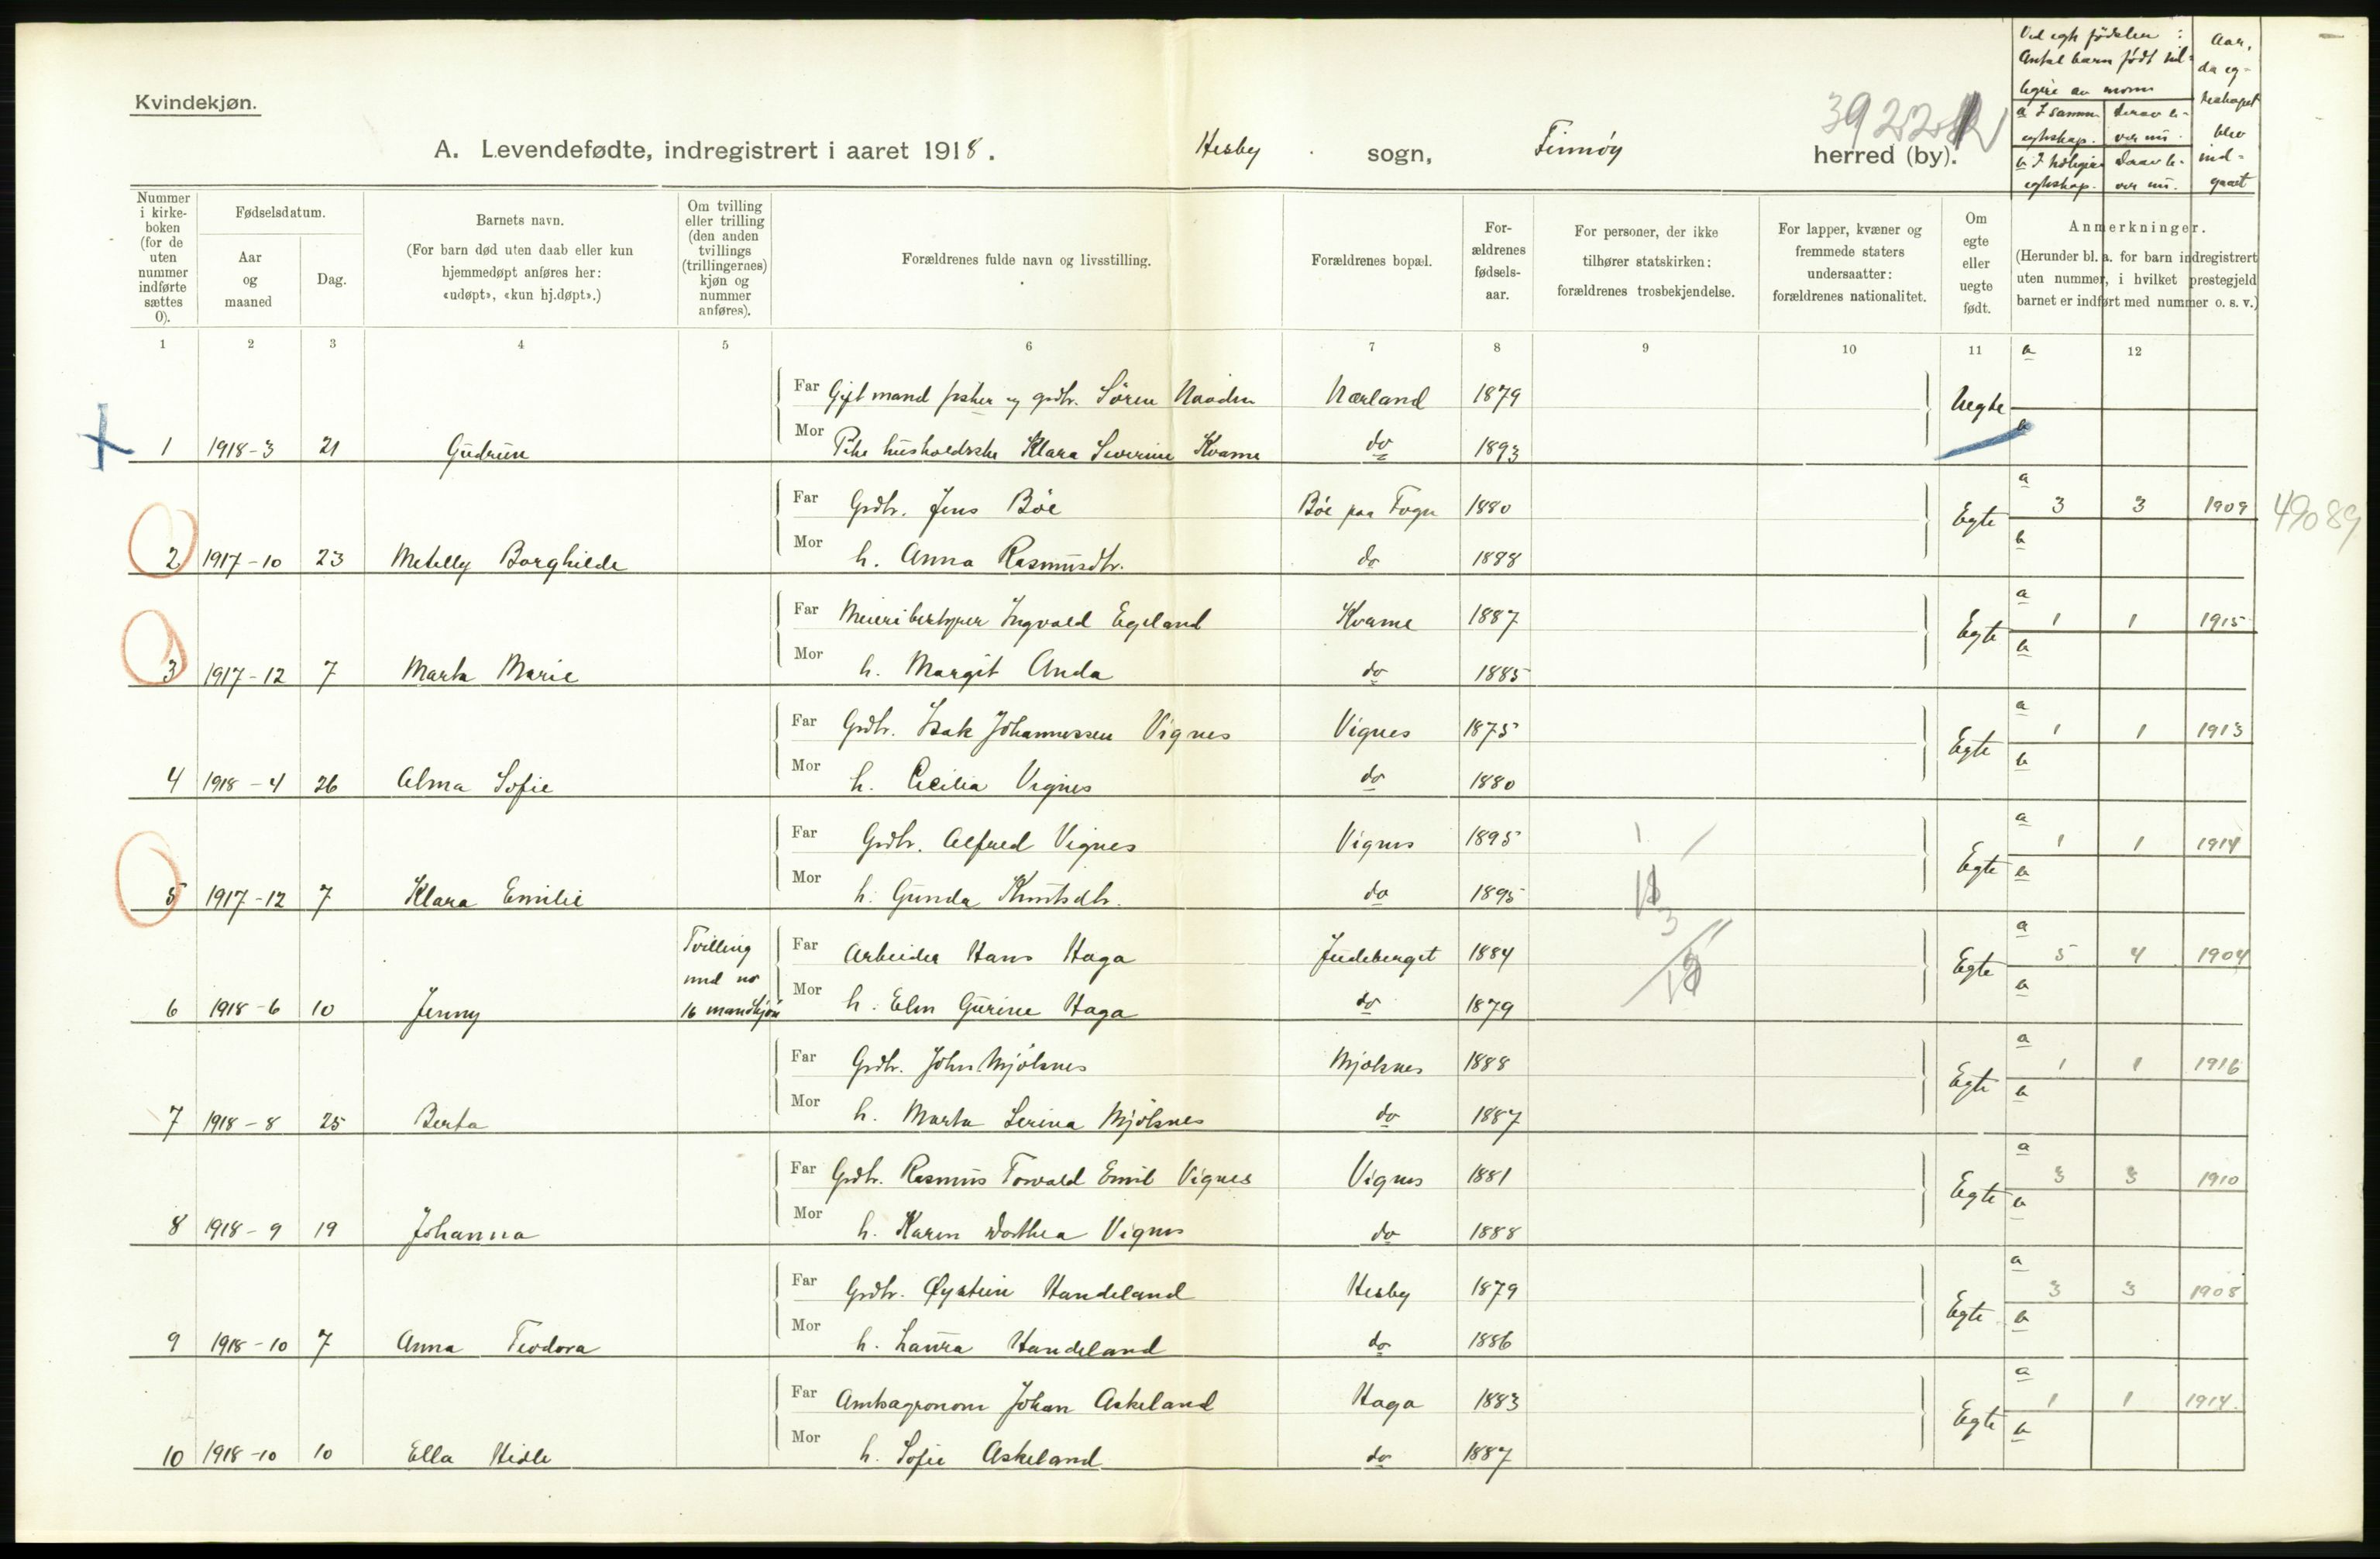 Kvindekjøn.
A. Levendefødte, indregistrert i aaret 1918. Hesby sogn, Finnøy herred (by).
Ved egte fødsler :
Antal barn født tid-
ligere av moren
a I samme egteskap. derav le-ver nu.
b I tidligere egteskap. Derav le-ver nu.
Aar, da eg-teskapet blev ind-gaaet
Nummer i kirke-boken (for de uten nummer indførte sættes 0).
Fødselsdatum.
Aar og maaned
Dag.
Barnets navn.
(For barn død uten daab eller kun hjemmedøpt anføres her: «udøpt», «kun hj.døpt».)
Om tvilling eller trilling (den anden tvillings (trillingernes) kjøn og nummer anføres).
Forældrenes fulde navn og livsstilling.
Forældrenes bopæl.
For-ældrenes fødsels-aar.
For personer, der ikke tilhører statskirken: forældrenes trosbekjendelse.
For lapper, kvæner og fremmede staters undersaatter: forældrenes nationalitet.
Om egte eller uegte født.
Anmerkninger.
(Herunder bl. a. for barn indregistrert uten nummer, i hvilket prestegjeld barnet er indført med nummer o. s. v.)
1 2 3 4 5 6 7 8 9 10 11 12
Far Gift mand fisker og grdbr. Sören Naaden Nærland 1879 Uegte
1 1918-3 21 Gudrun Mor Pike husholderske Klara Severine Kvame do 1893
Far Grdbr. Jens Böe Böe paa Fogn 1880 Egte a 3 3 1909 49089
2 1917-10 23 Metelly Borghilde Mor h. Anna Rasmusdtr. do 1888 b
Far Meieribestyrer Ingvald Egeland Kvame 1887 Egte a 1 1 1915
3 1917-12 7 Marta Marie Mor h. Margit Anda do 1885 b
Far Grdbr. Isak Johannessen Vignes Vignes 1875 Egte a 1 1 1913
4 1918-4 26 Alma Sofie Mor h. Cecilia Vignes do 1880 b
Far Grdbr. Alfred Vignes Vignes 1895 Egte a 1 1 1914
5 1917-12 7 Klara Emilie Mor h. Gunda Knutsdtr. do 1895 b
Far Arbeider Hans Haga Judeberget 1884 Egte a 5 4 1904
6 1918-6 10 Jenny Tvilling med no 16 mandkjøn Mor h. Elen Gurine Haga do 1879 b
Far Grdbr. John Mjölsnes Mjölsnes 1888 Egte a 1 1 1916
7 1918-8 25 Berta Mor h. Marta Serina Mjölsnes do 1887 b
Far Grdbr. Rasmus Torvald Emil Vignes Vignes 1881 Egte a 3 3 1910
8 1918-9 19 Johanna Mor h. Karen Dorthea Vignes do 1888 b
Far Grdbr. Øystein Handeland Hesby 1879 Egte a 3 3 1908
9 1918-10 7 Anna Teodora Mor h. Laura Handeland do 1886 b
Far Amtsagronom Johan Askeland Haga 1883 Egte a 1 1 1914.
10 1918-10 10 Ella Hidle Mor h. Sofie Askeland do 1887 b